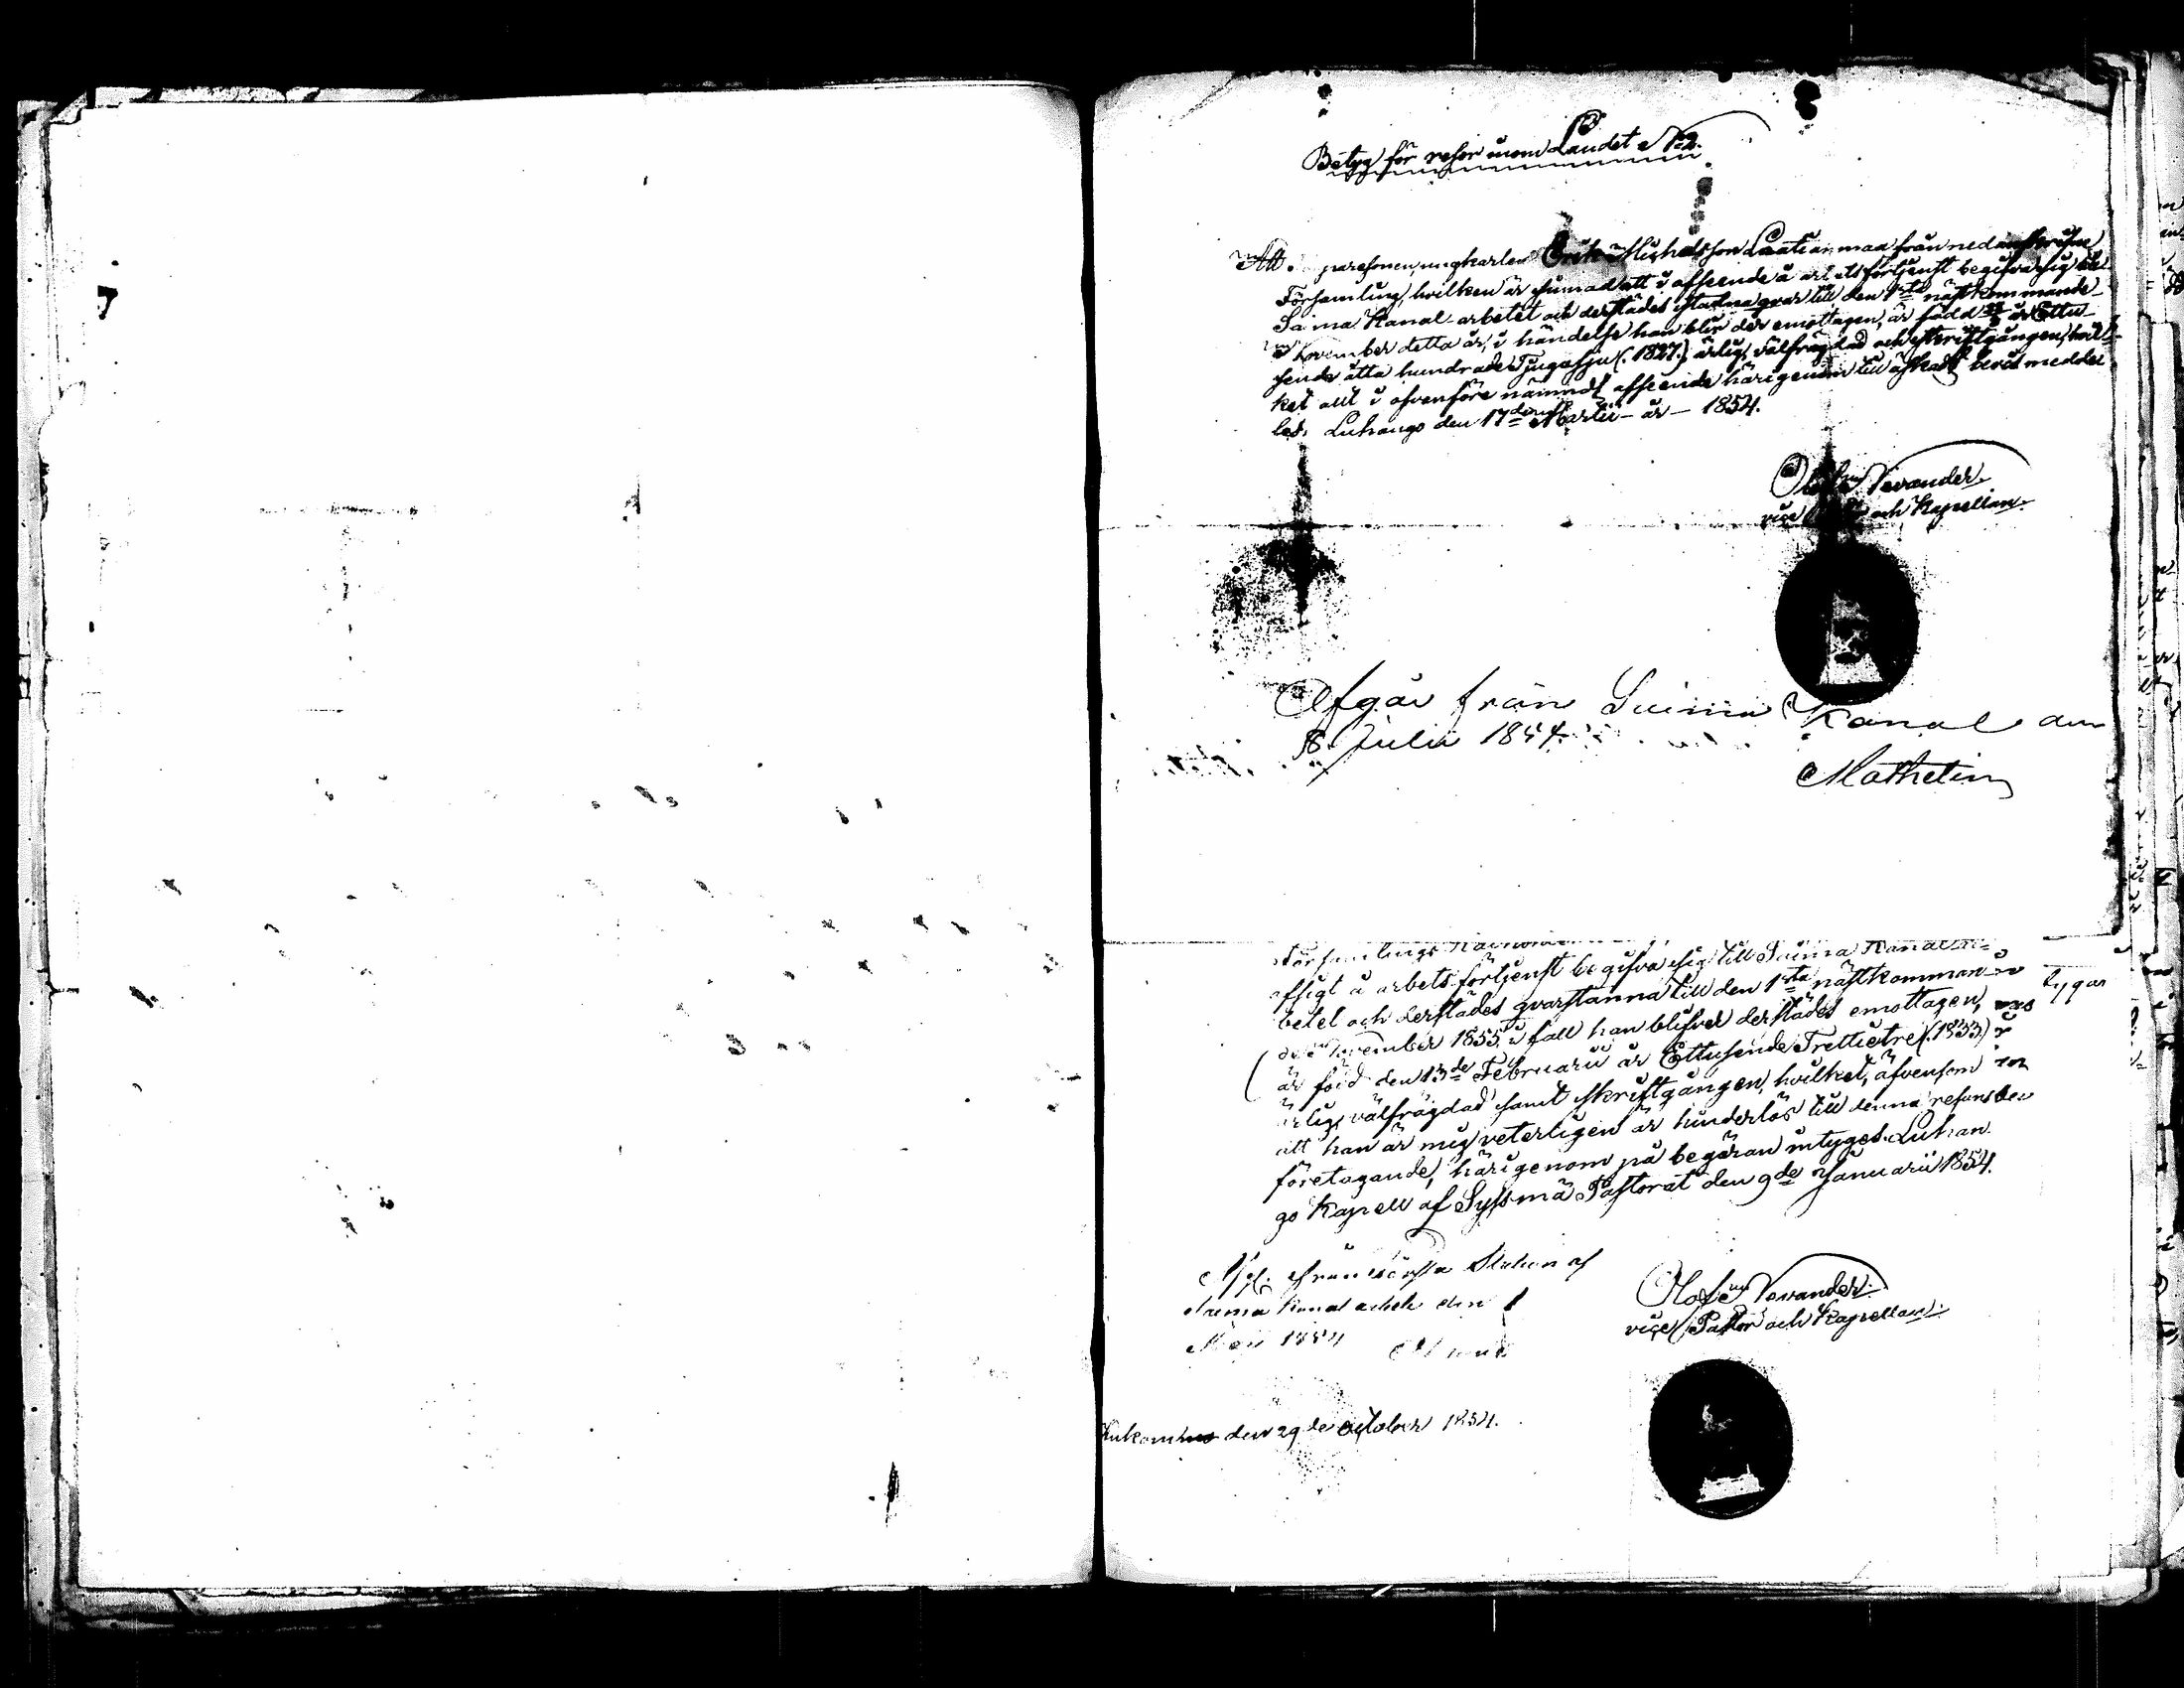 Betyg för resor inom Landet N:2.
Att paresonen, ungkarlen Erik Michelsson Laatiainmaa från nedanskrefne
Församling, hvilken är sinnad att i afseende å arbetsförtjenst begifva sig till
Saima Kanal-arbetet och derstädes stadna qvar till den 1sta nästkommande
November detta år, i händelse han blir der emottagen, är född år Ettu-
sende åtta hundrade Tjugosju (1827.) ärlig, välfrägdad och skriftgången, hvil-
ket allt i ofvanföre nämndt afseende härigenom till äskadt bevis meddel
las. Luhango den 17de Martii år 1854.
Olof Nevander
vice och Kapellan.
Afgår från Saima Kanal den
8 Julii 1854.
Mathelin
Församlings
afsigt å arbetsförtjenst begifva sig till Saima Kanal ar=
betet och derstädes qvarstanna till den 1sta nästkomman=
de November 1855, i fall han blifver derstädes emottagen,
är född den 13de Februarii år Ettusende Trettietre (1833.)
ärlig, välfrägdad samt skriftgången, hvilket, äfvensom
att han är mig veterligen är hinderlös till denna resans
företagande, härigenom på begäran intygas. Luhan
go Kapell af Syssmä Pastorat den 9de Januarii 1854.
från Station af
Saima Kanal arbete den 1
Maji 1854
Olof Nevander
vice Pastor och Kapellan.
Ankom den 29de October 1854.